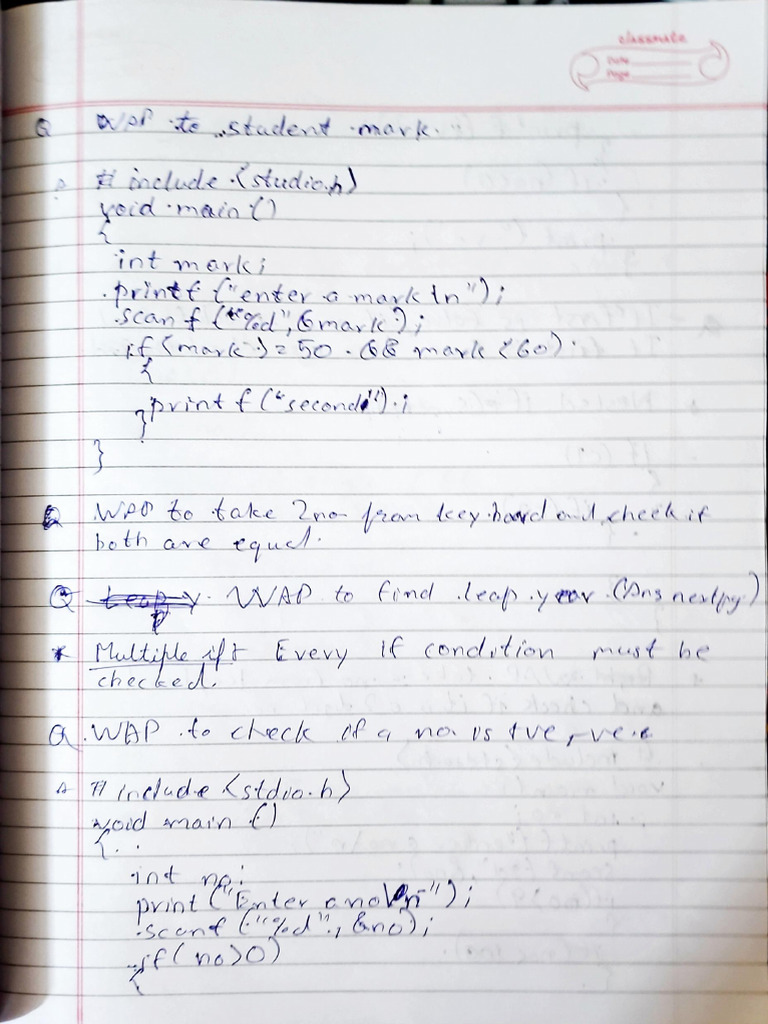 classmate
Date
Page
Q WAP to student mark.
A # include <studio.h>
void main ()
{
int mark;
printf ("enter a mark \n");
scanf ("%d", &mark);
if (mark >= 50 && mark < 60)
{
printf ("second");
}
}
Q WAP to take 2 no from key board and check if
both are equal.
Q WAP to find leap year. (Ans next pg)
* Multiple if: Every if condition must be
checked.
Q. WAP to check if a no is +ve, -ve.
A # include <stdio.h>
void main ()
{
int no;
print ("Enter a no \n");
scanf ("%d", &no);
if (no>0)
{